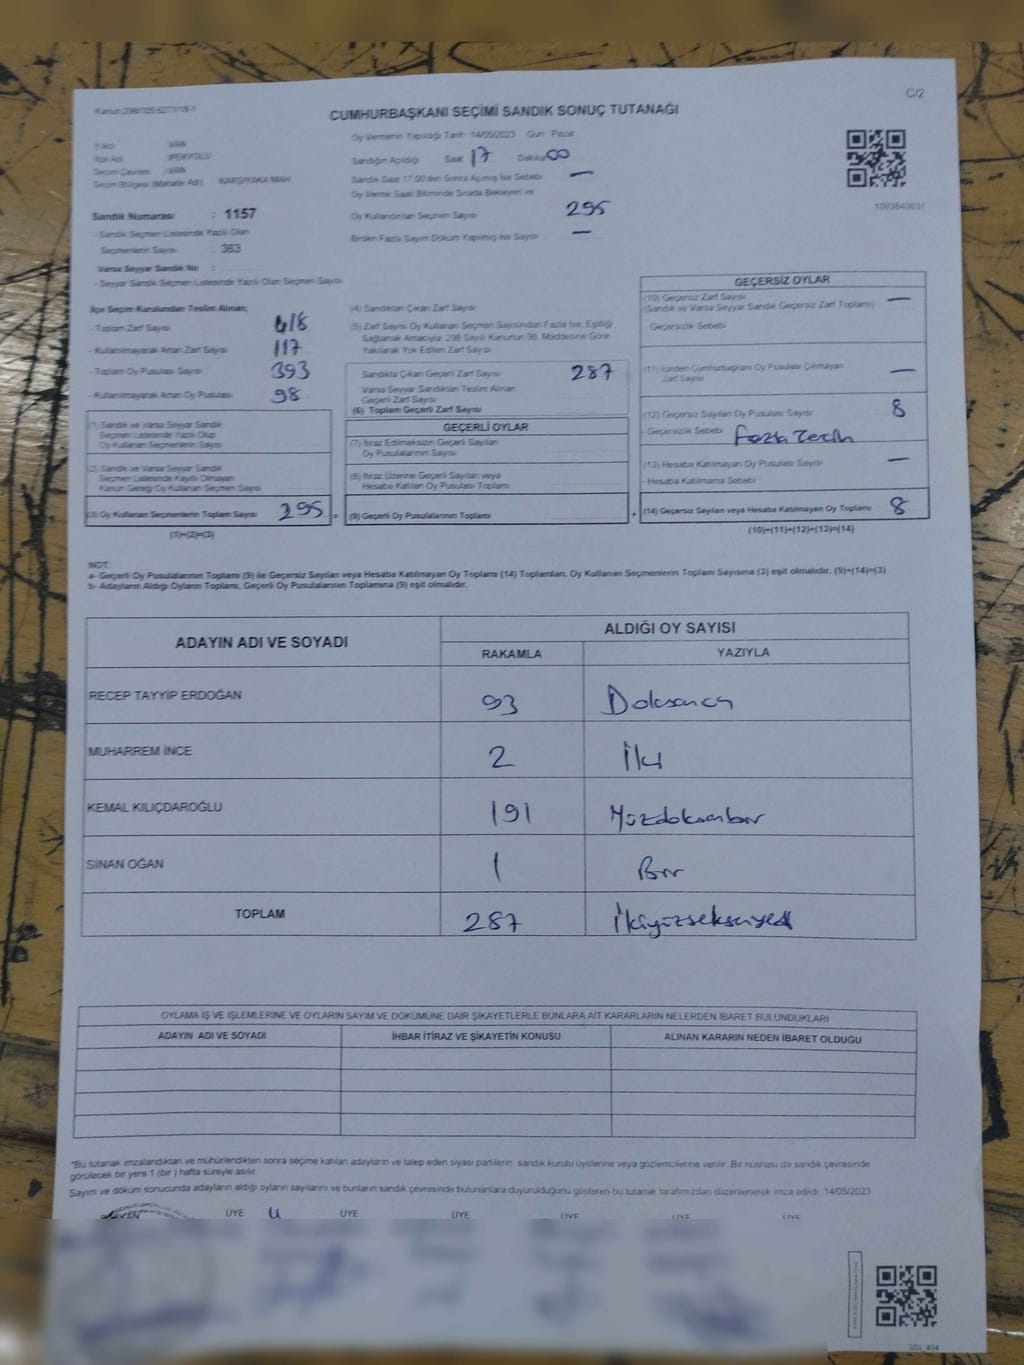 C/2
CUMHURBAŞKANI SEÇİMİ SANDIK SONUÇ TUTANAĞI
Oy Vermenin Yapıldığı Tarih: 14/05/2023 Gün: Pazar
İl Adı : VAN
İlçe Adı : İPEKYOLU
Seçim Çevresi : VAN
Seçim Bölgesi (Mahalle Adı) : KARŞIYAKA MAH.
Sandığın Açıldığı Saat 17 Dakika 00
Sandık Saat 17:00'den Sonra Açılmış İse Sebebi —
Oy Verme Saati Bitiminde Sırada Bekleyen ve
Oy Kullandırılan Seçmen Sayısı 295
Birden Fazla Sayım Döküm Yapılmış İse Sayısı —
1093643831
Sandık Numarası : 1157
- Sandık Seçmen Listesinde Yazılı Olan
Seçmenlerin Sayısı : 363
Varsa Seyyar Sandık No :
- Seyyar Sandık Seçmen Listesinde Yazılı Olan Seçmen Sayısı
İlçe Seçim Kurulundan Teslim Alınan;
- Toplam Zarf Sayısı 418
- Kullanılmayarak Artan Zarf Sayısı 117
- Toplam Oy Pusulası Sayısı 393
- Kullanılmayarak Artan Oy Pusulası 98
(1) Sandık ve Varsa Seyyar Sandık
Seçmen Listesinde Yazılı Olup
Oy Kullanan Seçmenlerin Sayısı
(2) Sandık ve Varsa Seyyar Sandık
Seçmen Listesinde Kayıtlı Olmayan
Kanun Gereği Oy Kullanan Seçmen Sayısı
(3) Oy Kullanan Seçmenlerin Toplam Sayısı 295 =
(1)+(2)=(3)
(4) Sandıktan Çıkan Zarf Sayısı
(5) Zarf Sayısı Oy Kullanan Seçmen Sayısından Fazla İse, Eşitliği
Sağlamak Amacıyla, 298 Sayılı Kanunun 98. Maddesine Göre
Yakılarak Yok Edilen Zarf Sayısı
Sandıkta Çıkan Geçerli Zarf Sayısı 287
Varsa Seyyar Sandıktan Teslim Alınan
Geçerli Zarf Sayısı
(6) Toplam Geçerli Zarf Sayısı
GEÇERLİ OYLAR
(7) İtiraz Edilmeksizin Geçerli Sayılan
Oy Pusulası Sayısı
(8) İtiraz Üzerine Geçerli Sayılan veya
Hesaba Katılan Oy Pusulası Toplamı
(9) Geçerli Oy Pusulalarının Toplamı +
GEÇERSİZ OYLAR
(10) Geçersiz Zarf Sayısı —
(Sandık ve Varsa Seyyar Sandık Geçersiz Zarf Toplamı)
- Geçersizlik Sebebi
(11) İçinden Cumhurbaşkanı Oy Pusulası Çıkmayan —
Zarf Sayısı
(12) Geçersiz Sayılan Oy Pusulası Sayısı 8
- Geçersizlik Sebebi Fazla Tercih
(13) Hesaba Katılmayan Oy Pusulası Sayısı —
- Hesaba Katılmama Sebebi
(14) Geçersiz Sayılan veya Hesaba Katılmayan Oy Toplamı 8
(10)+(11)+(12)+(13)=(14)
NOT:
a- Geçerli Oy Pusulalarının Toplamı (9) ile Geçersiz Sayılan veya Hesaba Katılmayan Oy Toplamı (14) Toplamları, Oy Kullanan Seçmenlerin Toplam Sayısına (3) eşit olmalıdır. (9)+(14)=(3)
b- Adayların Aldığı Oyların Toplamı, Geçerli Oy Pusulalarının Toplamına (9) eşit olmalıdır.
ADAYIN ADI VE SOYADI ALDIĞI OY SAYISI
RAKAMLA YAZIYLA
RECEP TAYYİP ERDOĞAN 93 Doksanüç
MUHARREM İNCE 2 İki
KEMAL KILIÇDAROĞLU 191 Yüzdoksanbir
SİNAN OĞAN 1 Bir
TOPLAM 287 İkiyüzseksenyedi
OYLAMA İŞ VE İŞLEMLERİNE VE OYLARIN SAYIM VE DÖKÜMÜNE DAİR ŞİKAYETLERLE BUNLARA AİT KARARLARIN NELERDEN İBARET BULUNDUKLARI
ADAYIN ADI VE SOYADI İHBAR İTİRAZ VE ŞİKAYETİN KONUSU ALINAN KARARIN NEDEN İBARET OLDUĞU
*Bu tutanak imzalandıktan ve mühürlendikten sonra seçime katılan adayların ve talep eden siyasi partilerin sandık kurulu üyelerine veya gözlemcilerine verilir. Bir nüshası da sandık çevresinde
görülecek bir yere 1 (bir) hafta süreyle asılır.
Sayım ve döküm sonucunda adayların aldığı oyların sayılarını ve bunların sandık çevresinde bulunanlara duyurulduğunu gösteren bu tutanak tarafımızdan düzenlenerek imza edildi. 14/05/2023
ÜYE ÜYE ÜYE ÜYE ÜYE ÜYE